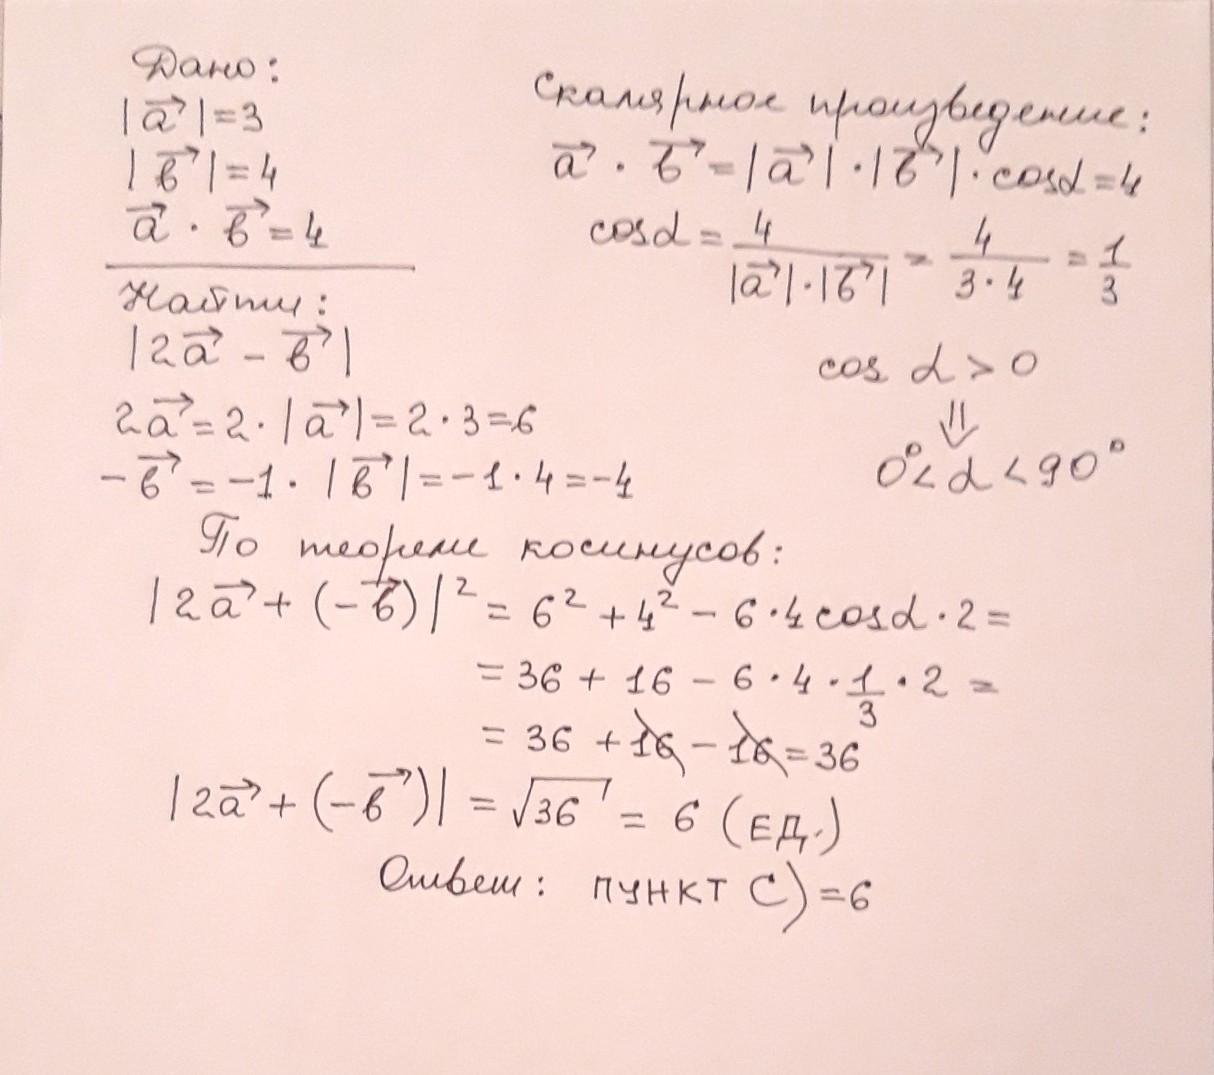 Дано:
|a⃗|=3
|в⃗|=4
a⃗ · в⃗=4
Найти:
|2a⃗ - в⃗|
Скалярное произведение:
a⃗ · в⃗=|a⃗|·|в⃗|·cosα=4
cosα = 4/(|a⃗|·|в⃗|) = 4/(3·4) = 1/3
cos α > 0
⇓
0°< α < 90°
2a⃗=2·|a⃗|=2·3=6
-в⃗ = -1·|в⃗|=-1·4=-4
По теореме косинусов:
|2a⃗+(-в⃗)|² = 6² + 4² - 6·4cosα·2=
= 36 + 16 - 6·4·1/3·2 =
= 36 + 16 - 16 = 36
|2a⃗+(-в⃗)| = √36 = 6 (ЕД.)
Ответ: ПУНКТ С) = 6